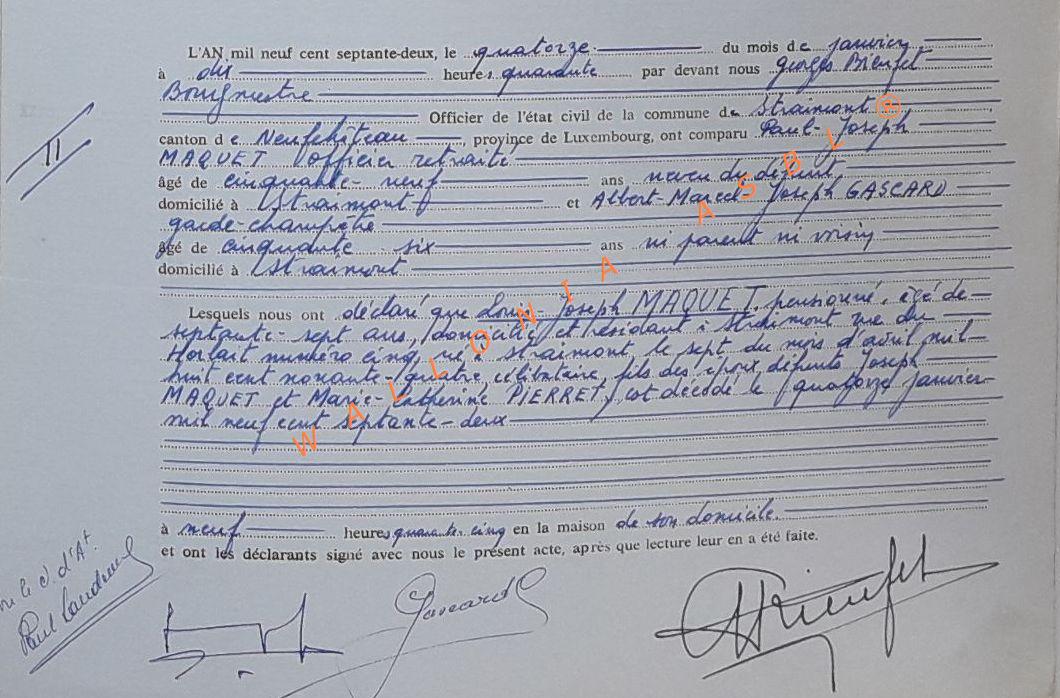 L'AN mil neuf cent septante-deux, le quatorze du mois de janvier
à dix heures quarante par devant nous Georges Bienfet
Bourgmestre
Officier de l'état civil de la commune de Straimont
canton de Neufchâteau, province de Luxembourg, ont comparu Paul-Joseph
MAQUET officier retraité
âgé de cinquante-neuf ans neveu du défunt
domicilié à Straimont et Albert-Marcel-Joseph GASCARD
garde-champêtre
âgé de cinquante six ans ni parent ni voisin
domicilié à Straimont
Lesquels nous ont déclaré que Louis Joseph MAQUET, pensionné, âgé de
septante-sept ans, domicilié et résidant à Straimont rue du
numéro cinq, né à Straimont, le sept du mois d'août mil
huit cent nonante-quatre, célibataire, fils des époux défunts Joseph
MAQUET et Marie-Catherine PIERRET, est décédé le quatorze janvier
mil neuf cent septante-deux
à neuf heures quarante cinq en la maison de son domicile.
et ont les déclarants signé avec nous le présent acte, après que lecture leur en a été faite.
11
WALLONIA ASBL
Gascard
Bienfet
Paul